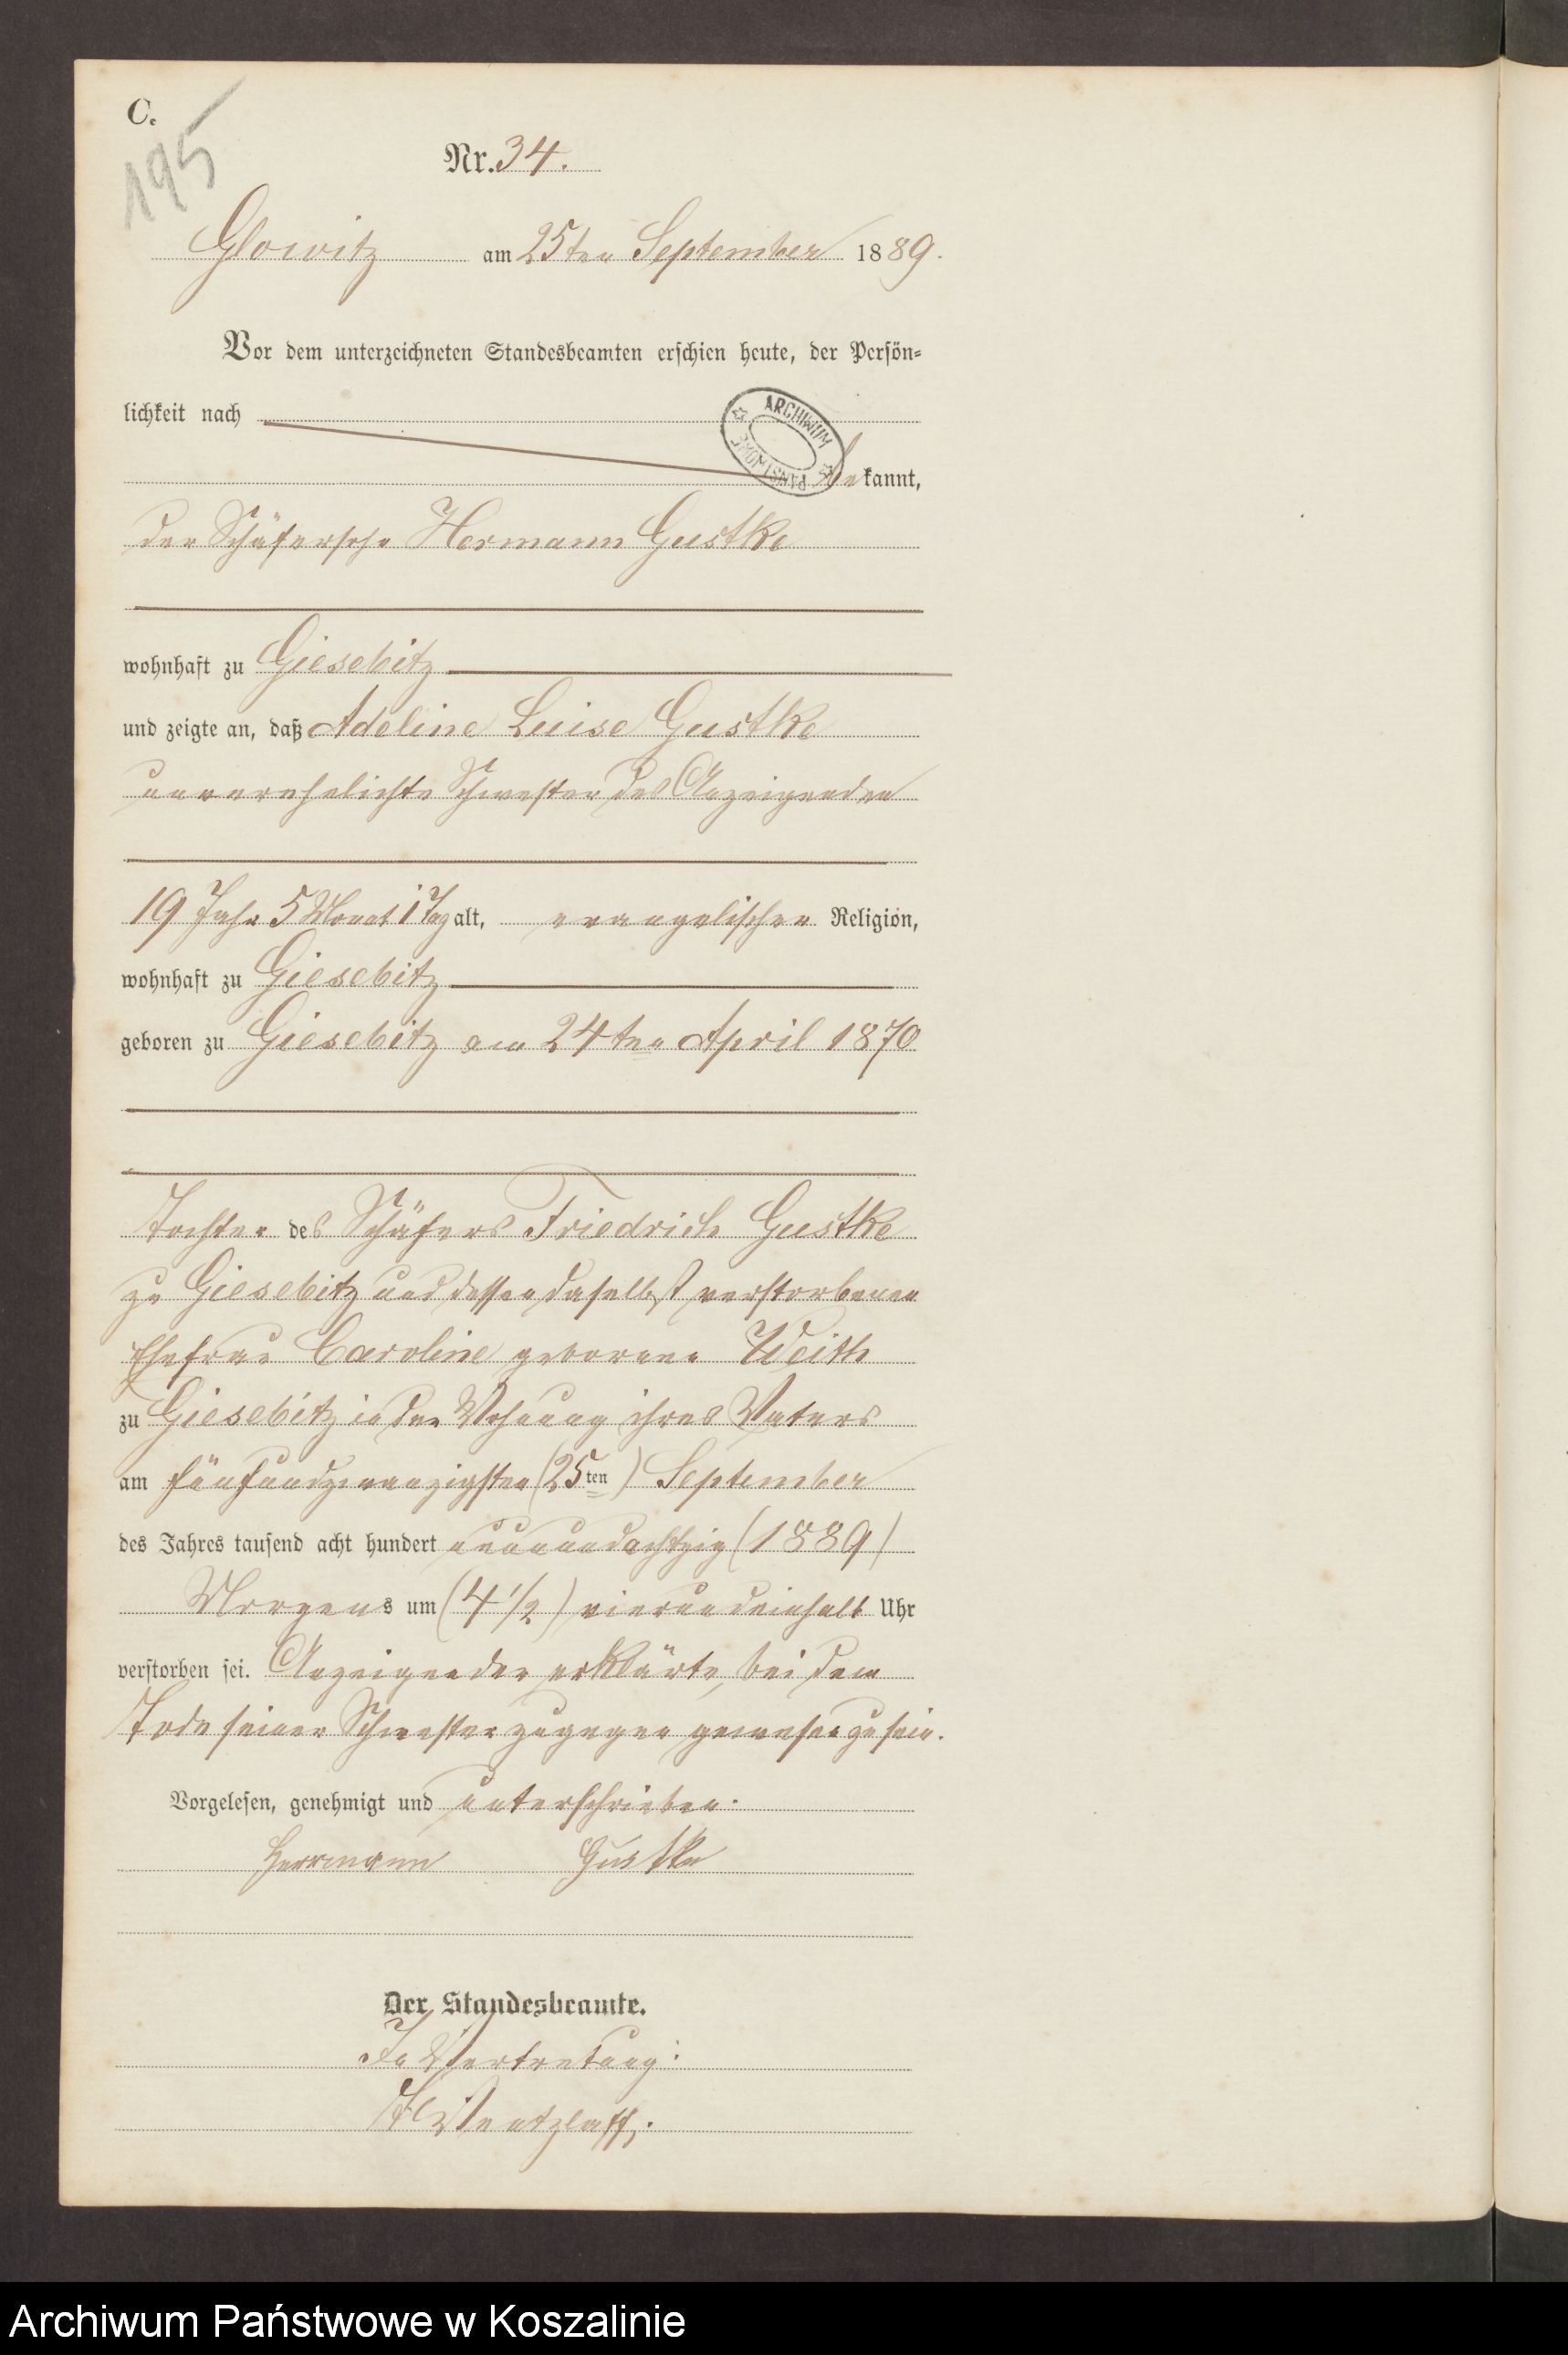 C.
195
Nr. 34.
Glowitz am 25ten September 1889.
Vor dem unterzeichneten Standesbeamten erschien heute, der Persön-
lichkeit nach
ARCHIWUM PAŃSTWOWE
bekannt,
der Schäfersohn Hermann Gustke
wohnhaft zu Giesebitz
und zeigte an, daß Adeline Luise Gustke
unverehelichte Schwester des Anzeigenden
19 Jahr 5 Monat 1 Tag alt, evangelischer Religion,
wohnhaft zu Giesebitz
geboren zu Giesebitz am 24ten April 1870
Tochter des Schäfers Friedrich Gustke
zu Giesebitz und dessen daselbst verstorbenen
Ehefrau Caroline geborene Weith
zu Giesebitz in der Wohnung ihres Vaters
am fünfundzwanzigsten (25ten) September
des Jahres tausend acht hundert neunundachtzig (1889)
Morgens um (4 1/2) vierundeinhalb Uhr
verstorben sei. Anzeigender erklärte, bei dem
Tode seiner Schwester zugegen gewesen zu sein.
Vorgelesen, genehmigt und unterschrieben.
Herrmann Gustke
Der Standesbeamte.
In Vertretung:
Wentzlaff.
Archiwum Państwowe w Koszalinie